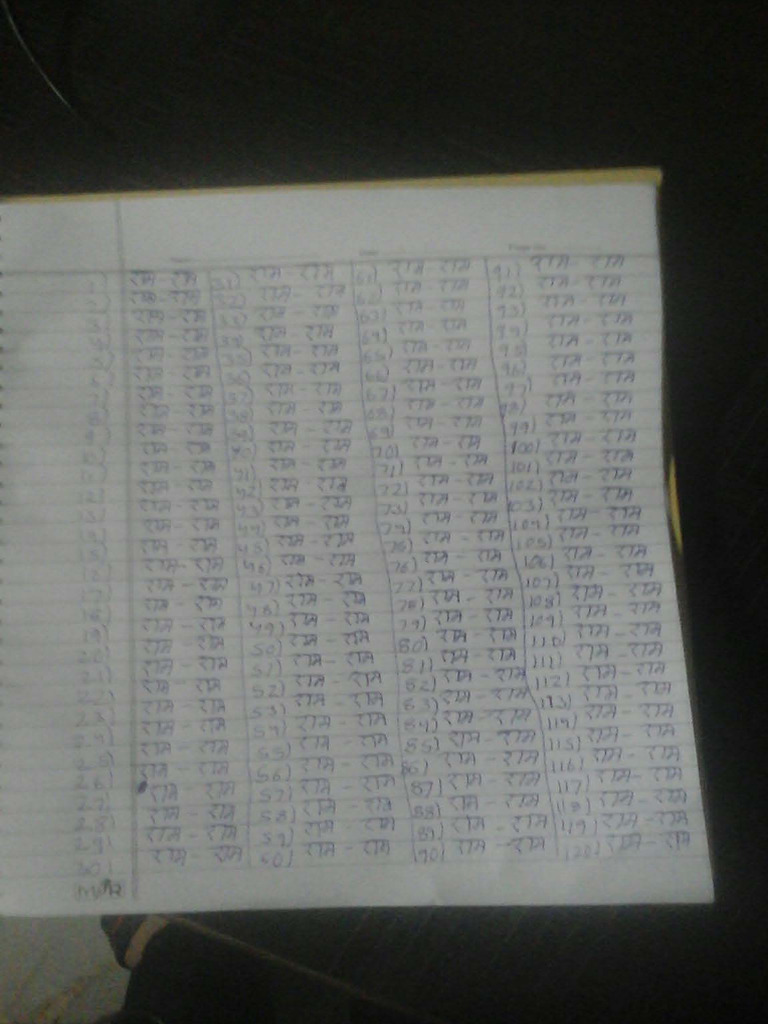 1) राम - राम
2) राम - राम
3) राम - राम
4) राम - राम
5) राम - राम
6) राम - राम
7) राम - राम
8) राम - राम
9) राम - राम
10) राम - राम
11) राम - राम
12) राम - राम
13) राम - राम
14) राम - राम
15) राम - राम
16) राम - राम
17) राम - राम
18) राम - राम
19) राम - राम
20) राम - राम
21) राम - राम
22) राम - राम
23) राम - राम
24) राम - राम
25) राम - राम
26) राम - राम
27) राम - राम
28) राम - राम
29) राम - राम
30) राम - राम
31) राम - राम
32) राम - राम
33) राम - राम
34) राम - राम
35) राम - राम
36) राम - राम
37) राम - राम
38) राम - राम
39) राम - राम
40) राम - राम
41) राम - राम
42) राम - राम
43) राम - राम
44) राम - राम
45) राम - राम
46) राम - राम
47) राम - राम
48) राम - राम
49) राम - राम
50) राम - राम
51) राम - राम
52) राम - राम
53) राम - राम
54) राम - राम
55) राम - राम
56) राम - राम
57) राम - राम
58) राम - राम
59) राम - राम
60) राम - राम
61) राम - राम
62) राम - राम
63) राम - राम
64) राम - राम
65) राम - राम
66) राम - राम
67) राम - राम
68) राम - राम
69) राम - राम
70) राम - राम
71) राम - राम
72) राम - राम
73) राम - राम
74) राम - राम
75) राम - राम
76) राम - राम
77) राम - राम
78) राम - राम
79) राम - राम
80) राम - राम
81) राम - राम
82) राम - राम
83) राम - राम
84) राम - राम
85) राम - राम
86) राम - राम
87) राम - राम
88) राम - राम
89) राम - राम
90) राम - राम
91) राम - राम
92) राम - राम
93) राम - राम
94) राम - राम
95) राम - राम
96) राम - राम
97) राम - राम
98) राम - राम
99) राम - राम
100) राम - राम
101) राम - राम
102) राम - राम
103) राम - राम
104) राम - राम
105) राम - राम
106) राम - राम
107) राम - राम
108) राम - राम
109) राम - राम
110) राम - राम
111) राम - राम
112) राम - राम
113) राम - राम
114) राम - राम
115) राम - राम
116) राम - राम
117) राम - राम
118) राम - राम
119) राम - राम
120) राम - राम